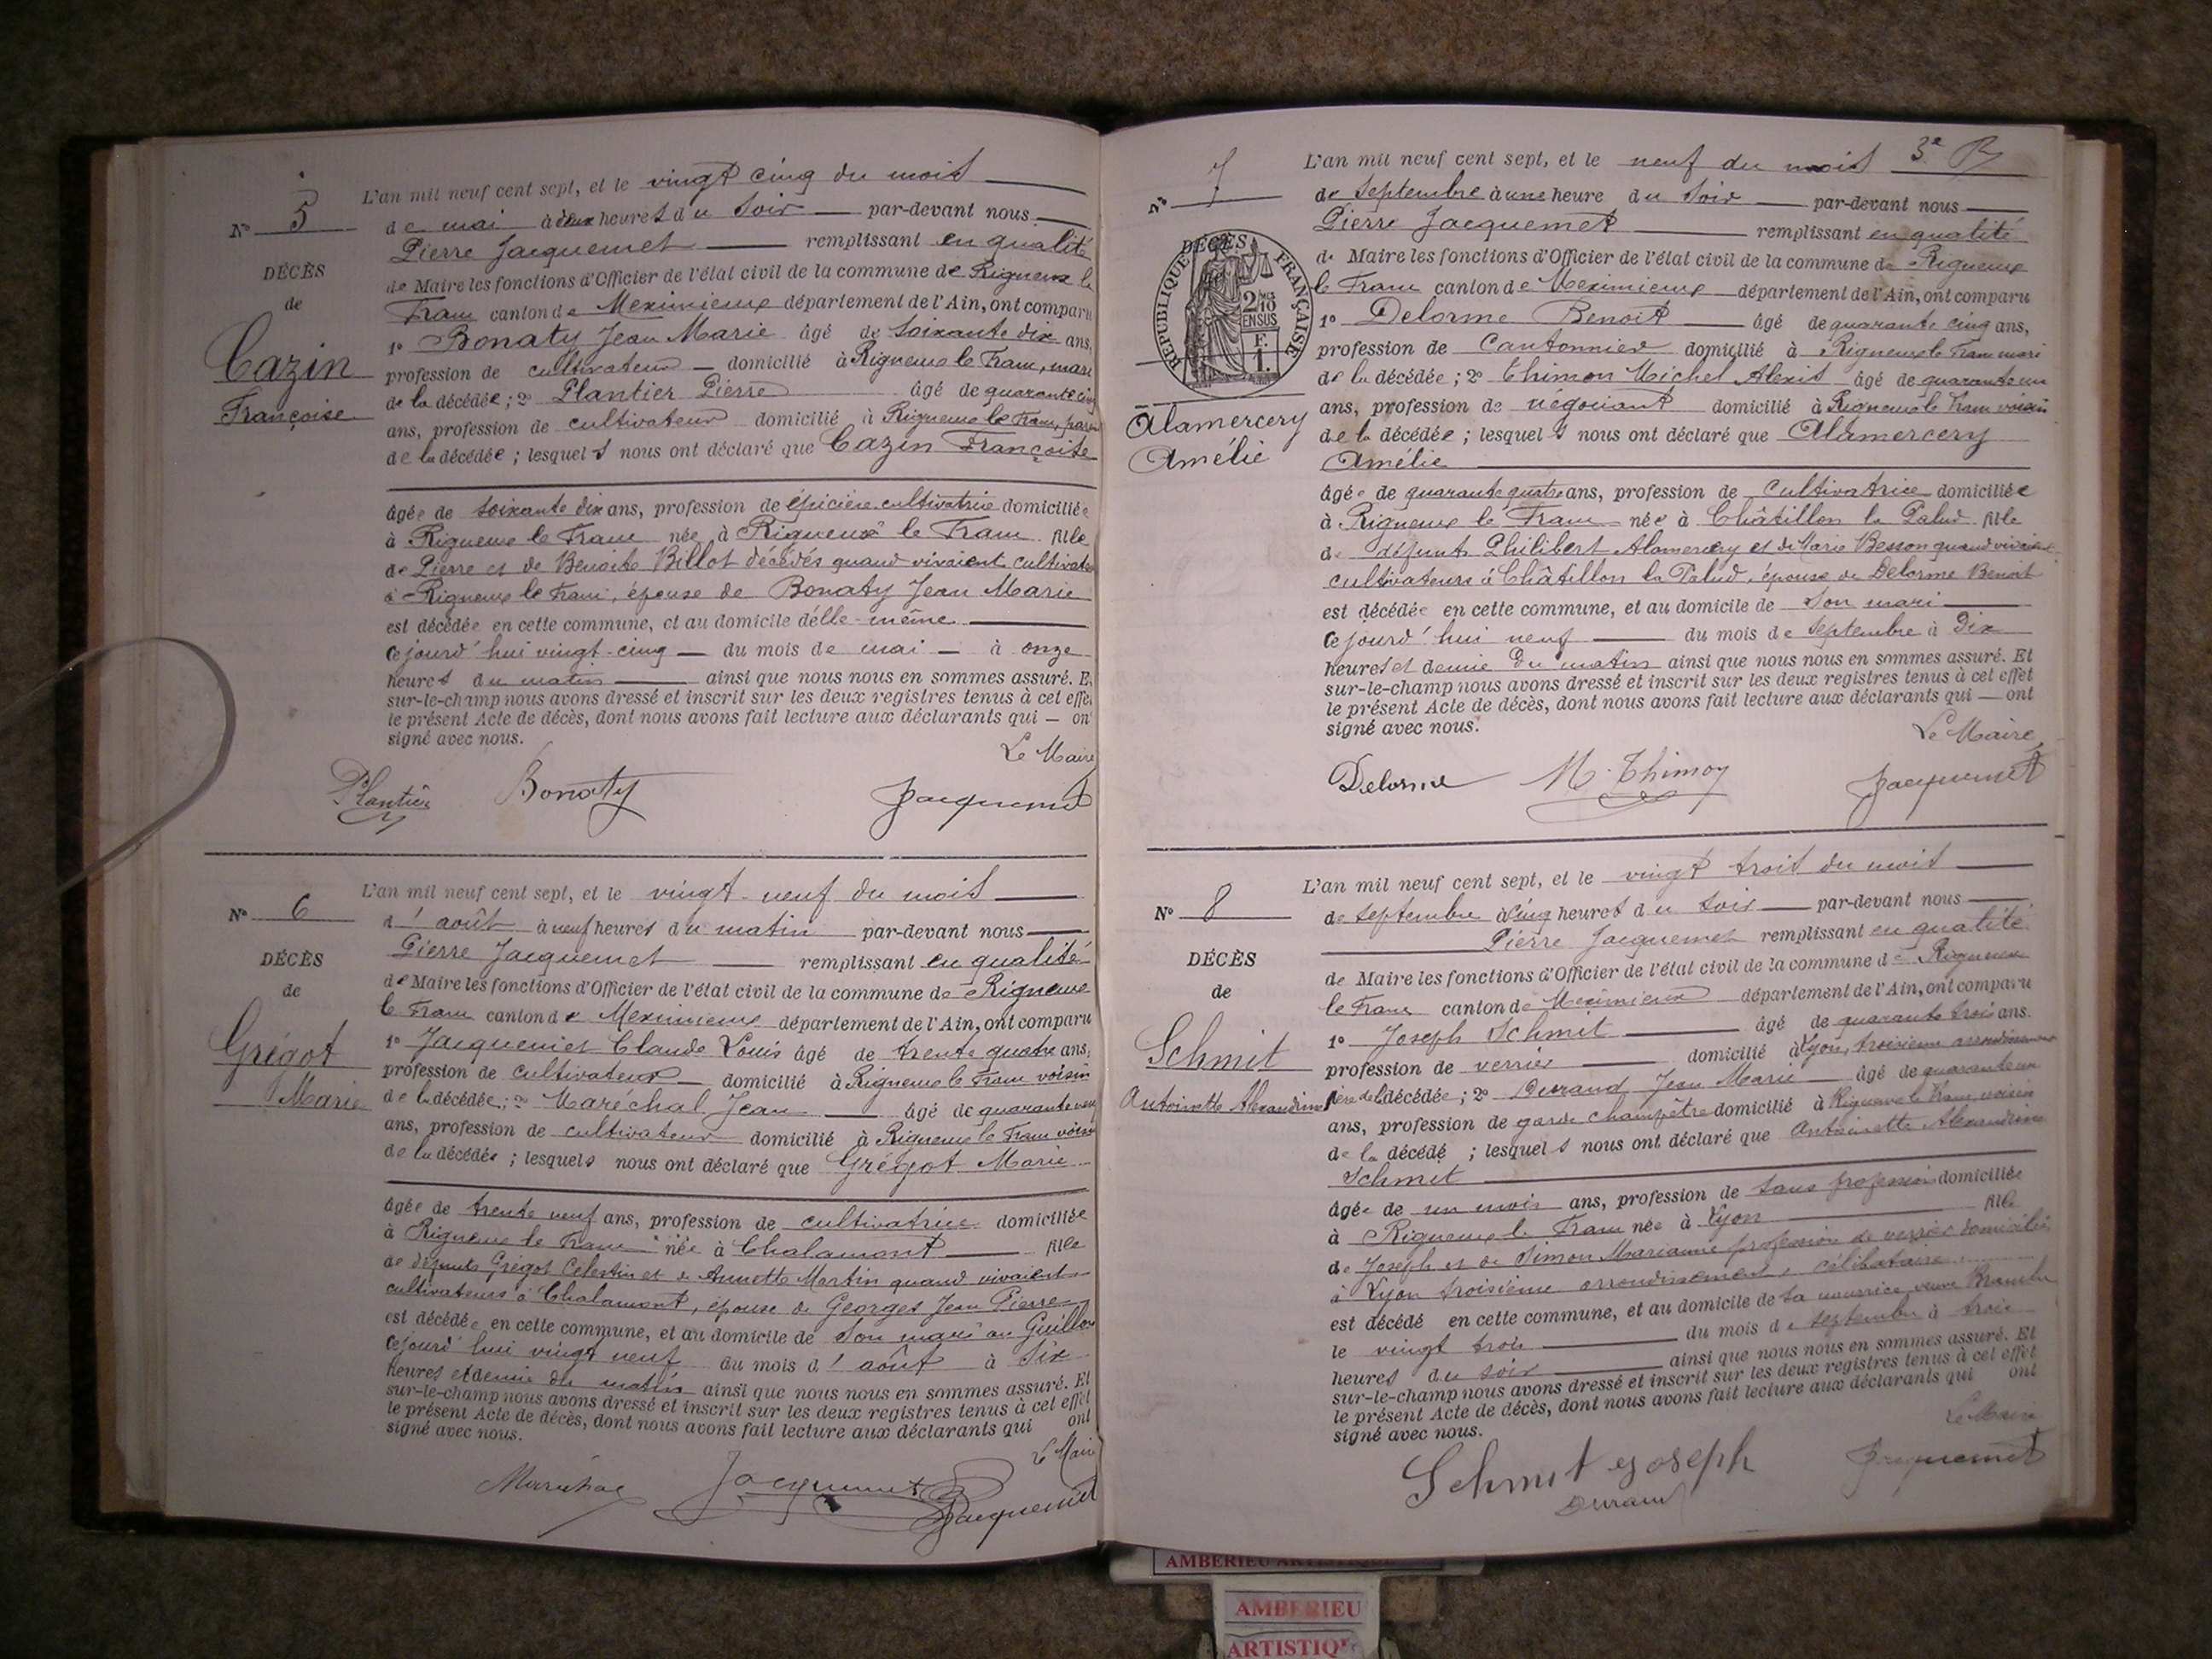 L'an mil neuf cent sept, et le vingt cinq du mois
N° 5
de mai à deux heures du soir par-devant nous
Pierre Jacquemet remplissant en qualité
DÉCÈS
de Maire les fonctions d'Officier de l'état civil de la commune de Rigneux le
de
Franc canton de Meximieux département de l'Ain, ont comparu
1° Bonaty Jean Marie âgé de soixante dix ans,
Cazin
profession de cultivateur domicilié à Rigneux le Franc, mari
Françoise
de la décédée ; 2° Plantier Pierre âgé de quarante cinq
ans, profession de cultivateur domicilié à Rigneux le Franc,
de la décédée ; lesquels nous ont déclaré que Cazin Françoise
âgée de soixante dix ans, profession de épicière cultivatrice domiciliée
à Rigneux le Franc née à Rigneux le Franc fille
de Pierre et de Benoite Billot décédés quand vivaient cultivate
à Rigneux le Franc, épouse de Bonaty Jean Marie
est décédée en cette commune, et au domicile d'elle-même
cejourd'hui vingt-cinq du mois de mai à onze
heures du matin ainsi que nous nous en sommes assuré. E
sur-le-champ nous avons dressé et inscrit sur les deux registres tenus à cet effe
le présent Acte de décès, dont nous avons fait lecture aux déclarants qui — on
signé avec nous.
Le Maire
Plantier Bonaty Jacquemet
L'an mil neuf cent sept, et le vingt-neuf du mois
N° 6
d'août à neuf heures du matin par-devant nous
Pierre Jacquemet remplissant en qualité
DÉCÈS
de Maire les fonctions d'Officier de l'état civil de la commune de Rigneux
de
le Franc canton de Meximieux département de l'Ain, ont comparu
1° Jacquemet Claude Louis âgé de trente quatre ans,
Grégot
profession de cultivateur domicilié à Rigneux le Franc voisin
Marie
de la décédée ; 2° Maréchal Jean âgé de quarante neuf
ans, profession de cultivateur domicilié à Rigneux le Franc voisin
de la décédée ; lesquels nous ont déclaré que Grégot Marie
âgée de trente neuf ans, profession de cultivatrice domiciliée
à Rigneux le Franc née à Chalamont fille
de défunts Grégot Celestin et de Annette Martin quand vivaient
cultivateurs à Chalamont, épouse de Georges Jean Pierre
est décédée en cette commune, et au domicile de son mari au Guillon
cejourd'hui vingt neuf du mois d'août à six
heures et demie du matin ainsi que nous nous en sommes assuré. Et
sur-le-champ nous avons dressé et inscrit sur les deux registres tenus à cet effet
le présent Acte de décès, dont nous avons fait lecture aux déclarants qui ont
signé avec nous.
Le Maire
Maréchal Jacquemet Jacquemet
3e
L'an mil neuf cent sept, et le neuf du mois
N° 7
de septembre à une heure du soir par-devant nous
Pierre Jacquemet remplissant en qualité
DÉCÈS
RÉPUBLIQUE FRANÇAISE
2/10 EN SUS
F. 1.
de Maire les fonctions d'Officier de l'état civil de la commune de Rigneux
le Franc canton de Meximieux département de l'Ain, ont comparu
1° Delorme Benoit âgé de quarante cinq ans,
profession de Cantonnier domicilié à Rigneux le Franc mari
de la décédée ; 2° Thimon Michel Alexis âgé de quarante un
Alamercery
ans, profession de négociant domicilié à Rigneux le Franc voisin
Amélie
de la décédée ; lesquels nous ont déclaré que Alamercery
Amélie
âgée de quarante quatre ans, profession de cultivatrice domiciliée
à Rigneux le Franc née à Châtillon la Palud fille
de défunts Philibert Alamercery et de Marie Besson quand vivaient
cultivateurs à Châtillon la Palud, épouse de Delorme Benoit
est décédée en cette commune, et au domicile de son mari
cejourd'hui neuf du mois de septembre à dix
heures et demie du matin ainsi que nous nous en sommes assuré. Et
sur-le-champ nous avons dressé et inscrit sur les deux registres tenus à cet effet
le présent Acte de décès, dont nous avons fait lecture aux déclarants qui — ont
signé avec nous.
Le Maire,
Delorme M. Thimon Jacquemet
L'an mil neuf cent sept, et le vingt trois du mois
N° 8
de septembre à cinq heures du soir par-devant nous
Pierre Jacquemet remplissant en qualité
DÉCÈS
de Maire les fonctions d'Officier de l'état civil de la commune de Rigneux
de
le Franc canton de Meximieux département de l'Ain, ont comparu
1° Joseph Schmit âgé de quarante trois ans.
Schmit
profession de verrier domicilié à Lyon, troisième arrondissement
Antoinette Alexandrine
père de la décédée ; 2° Durand Jean Marie âgé de quarante un
ans, profession de garde champêtre domicilié à Rigneux le Franc voisin
de la décédé ; lesquels nous ont déclaré que Antoinette Alexandrine
Schmit
âgée de un mois ans, profession de sans profession domiciliée
à Rigneux le Franc née à Lyon fille
de Joseph et de Simon Marianne profession de verrier domiciliés
à Lyon troisième arrondissement, célibataire
est décédé en cette commune, et au domicile de sa nourrice veuve
le vingt trois du mois de septembre à trois
heures du soir ainsi que nous nous en sommes assuré. Et
sur-le-champ nous avons dressé et inscrit sur les deux registres tenus à cet effet
le présent Acte de décès, dont nous avons fait lecture aux déclarants qui ont
signé avec nous.
Le Maire
Schmit Joseph Jacquemet
Durand
AMBERIEU ARTISTIQUE
AMBERIEU
ARTISTIQU